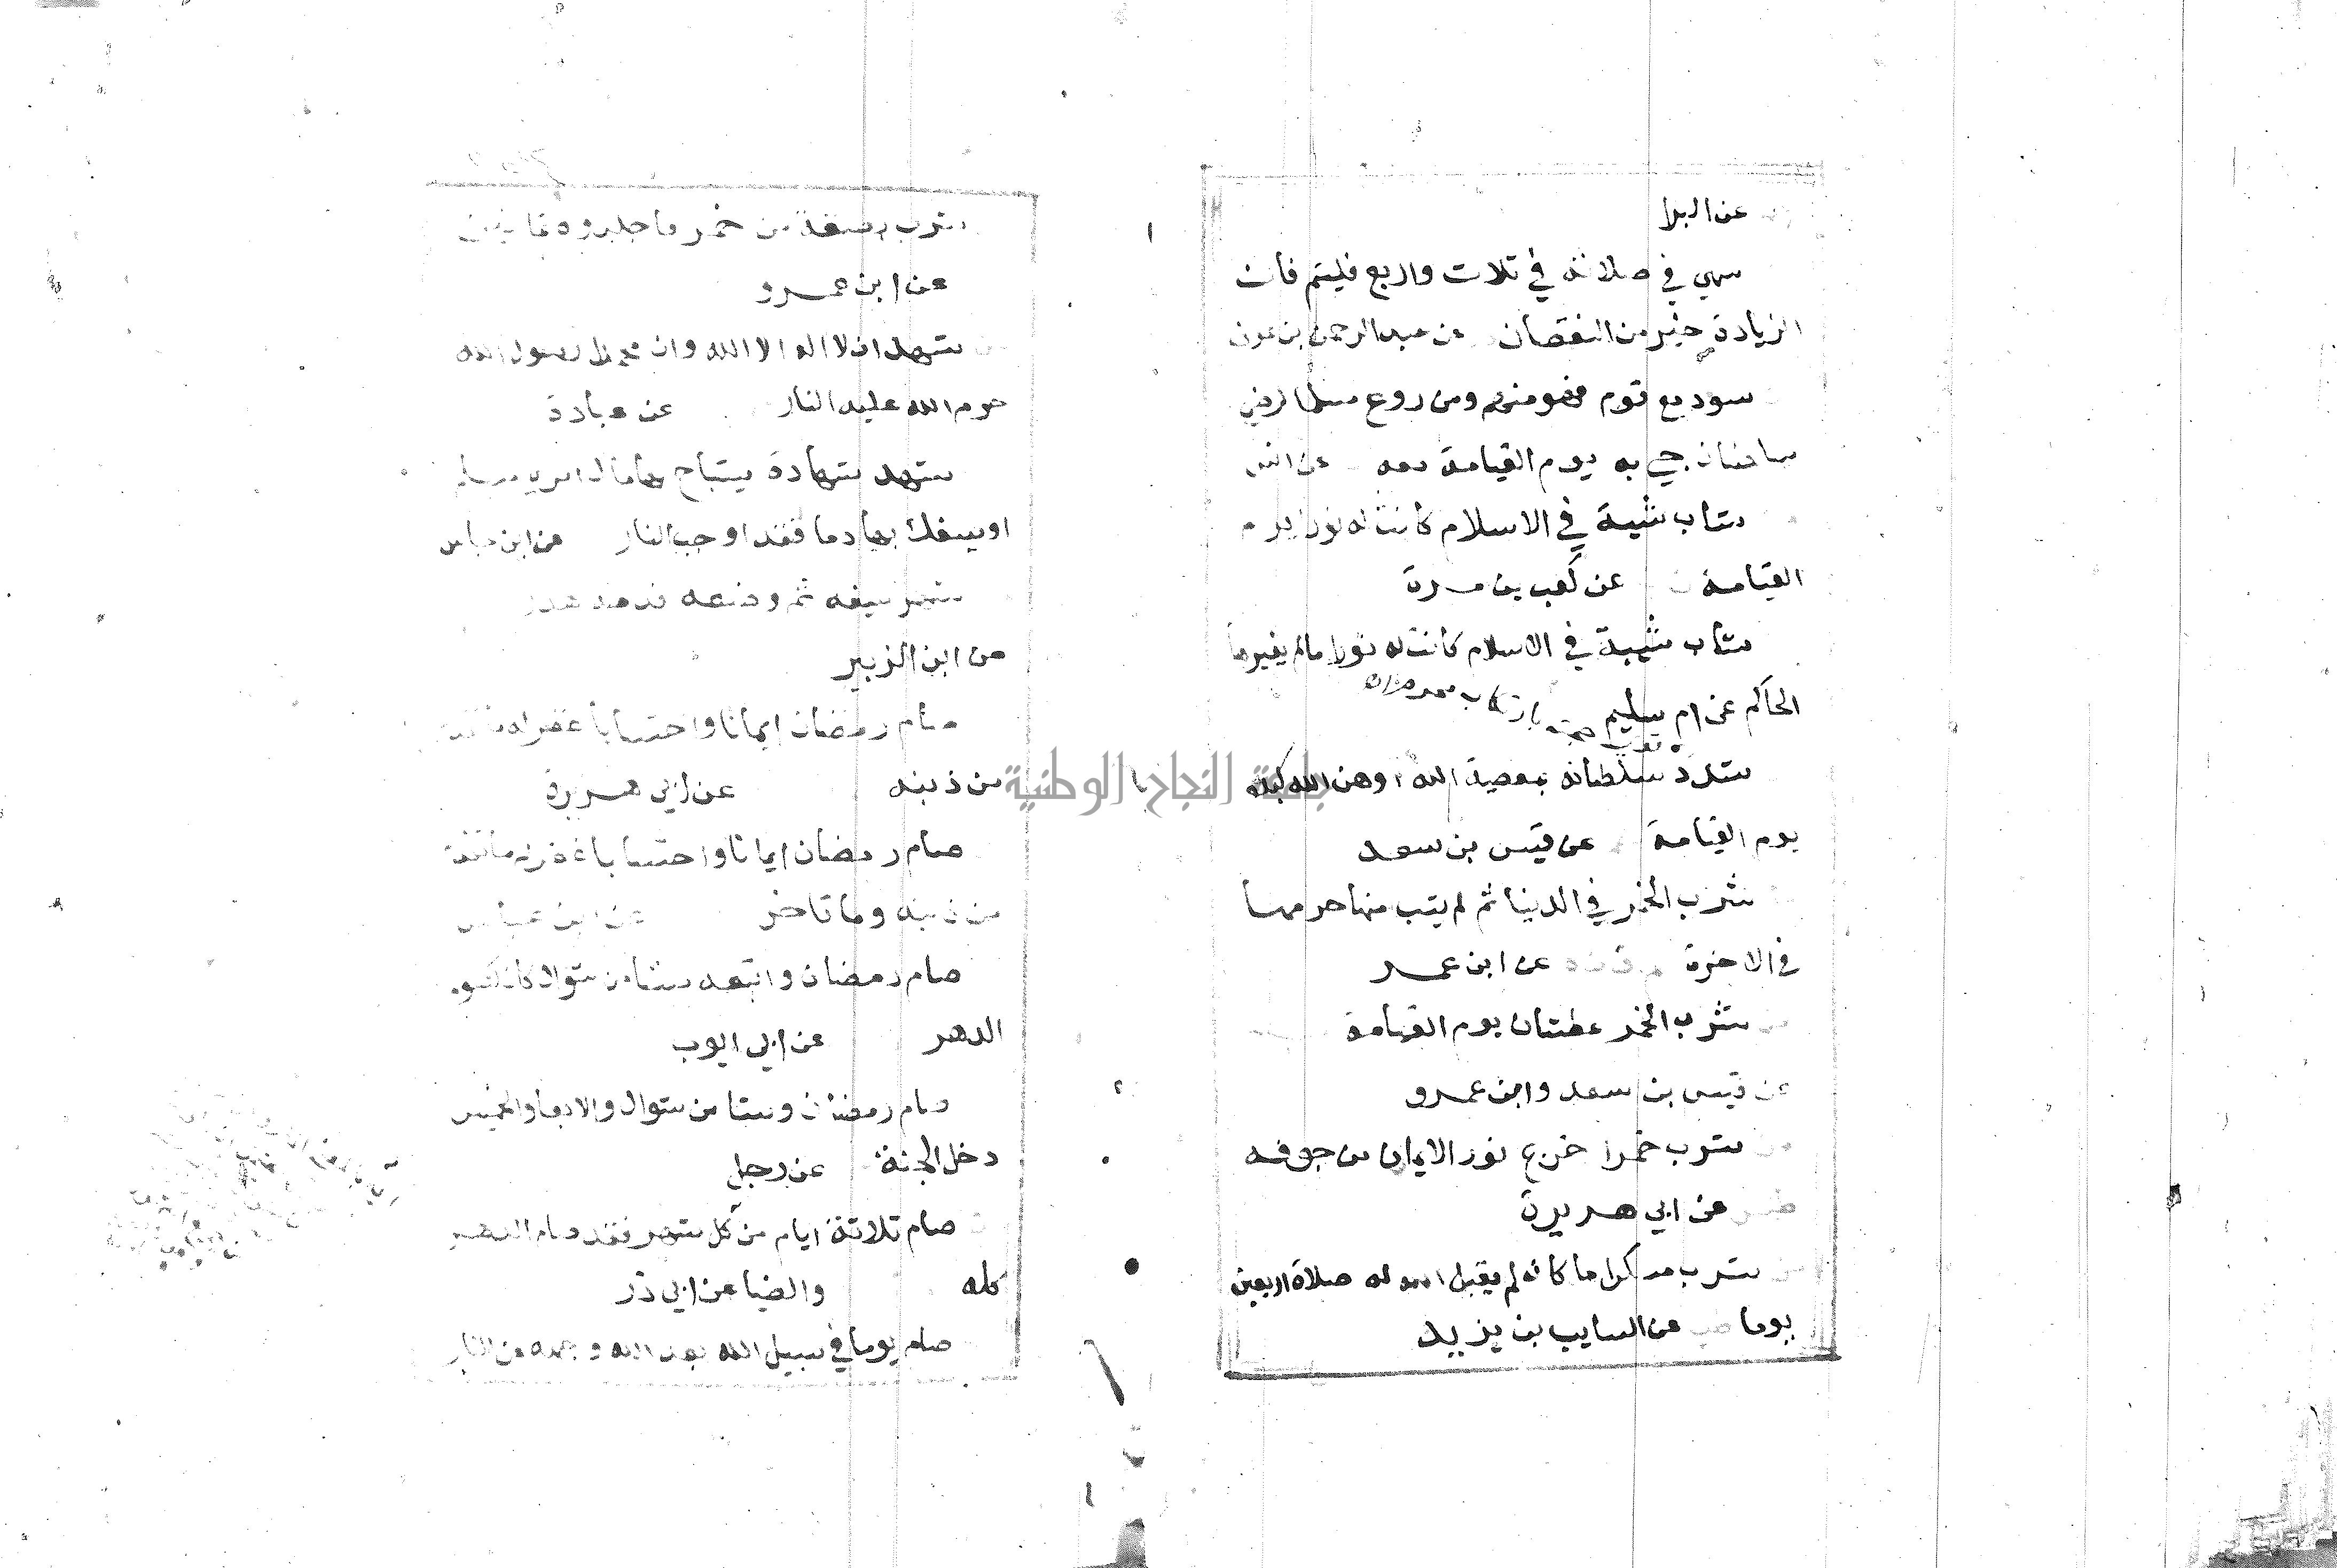 عن البرا
سهي في صلاته في تلات واربع فليتم فان
الزيادة خير من النقصان عن عبد الرحمن بن عوف
سود مع قوم فهو منهم ومن روع مسلما لرضي
سلطان جي به يوم القيامة معه عن انس
شاب شيبة في الاسلام كانت له نورا يوم
القيامة عن كعب بن مرة
شاب شيبة في الاسلام كانت له نورا ما لم يغيرها
الحاكم عن ام سليم
شدد سلطانه بمعصية الله اوهن الله كيده
يوم القيامة عن قيس بن سعد
شرب الخمر في الدنيا ثم لم يتب منها حرمها
في الاخرة عن ابن عمر
من شرب الخمر عطشان يوم القيامة
عن قيس بن سعد وابن عمرو
من شرب خمرا خرج نور الايمان من جوفه
عن ابي هريرة
من شرب مسكرا ما كان لم يقبل الله له صلاة اربعين
يوما عن السايب بن يزيد
شرب بصقة من خمر فاجلدوه ثمانين
عن ابن عمرو
من شهد ان لا اله الا الله وان محمدا رسول الله
حرم الله عليه النار عن عبادة
شهد شهادة يستباح بها مال امرئ مسلم
او يسفك بها دما فقد اوجب النار عن ابن عباس
شهر سيفه ثم وضعه فدمه هدر
عن ابن الزبير
صام رمضان ايمانا واحتسابا غفر له ما تقدم
من ذنبه عن ابي هريرة
صام رمضان ايمانا واحتسابا غفر له ما تقدم
من ذنبه وما تاخر عن ابن عباس
صام رمضان واتبعه ستا من شوال كان كصوم
الدهر عن ابي ايوب
صام رمضان وستا من شوال والاربعا والخميس
دخل الجنة عن رجل
صام تلاتة ايام من كل شهر فقد صام الدهر
كله والضيا عن ابي ذر
صام يوما في سبيل الله بعد الله وجهه عن النار
جامعة النجاح الوطنية